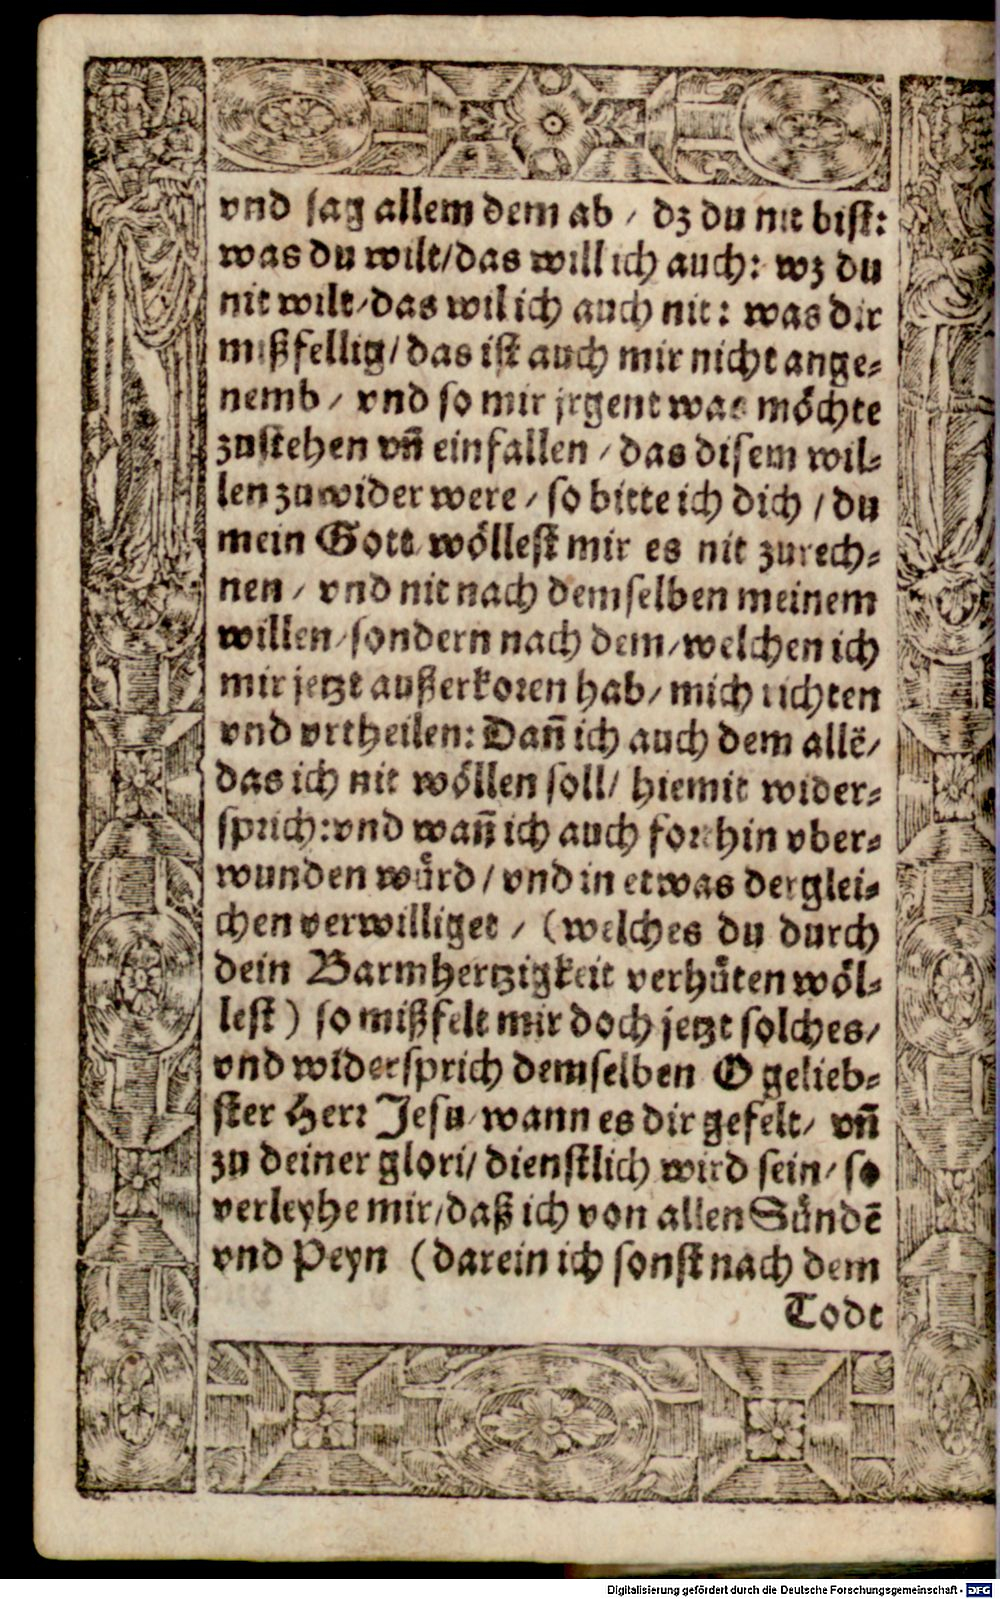 vnd sag allem dem ab / dz du nit bist:
was du wilt/das will ich auch: wz du
nit wilt/das wil ich auch nit: was dir
mißfellig/das ist auch mir nicht ange-
nemb / vnd so mir jrgent was möchte
zustehen vñ einfallen / das disem wil-
len zu wider were / so bitte ich dich / du
mein Gott wöllest mir es nit zurech-
nen / vnd nit nach demselben meinem
willen/sondern nach dem/welchen ich
mir jetzt außerkoren hab/ mich richten
vnd vrtheilen: Dañ ich auch dem allẽ/
das ich nit wöllen soll/ hiemit wider-
sprich:vnd wañ ich auch forthin vber-
wunden wuͤrd / vnd in etwas derglei-
chen verwilliget / (welches du durch
dein Barmhertzigkeit verhuͤten wöl-
lest) so mißfelt mir doch jetzt solches/
vnd widersprich demselben O gelieb-
ster Herr Jesu/wann es dir gefelt/ vñ
zu deiner glori/ dienstlich wird sein/ so
verleyhe mir/daß ich von allen Suͤndẽ
vnd Peyn (darein ich sonst nach dem
Todt
Digitalisierung gefördert durch die Deutsche Forschungsgemeinschaft - DFG